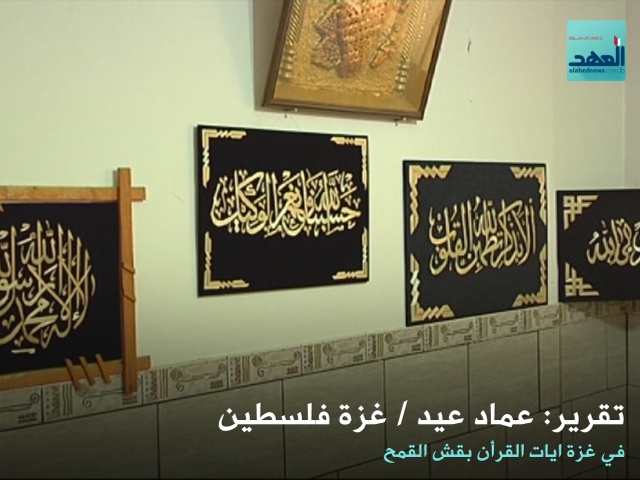 العهد
alahednews.com.lb
حسبنا الله ونعم الوكيل
ألا بذكر الله تطمئن القلوب
لا إله إلا الله محمد رسول الله
تقرير: عماد عيد / غزة فلسطين
في غزة ايات القرأن بقش القمح